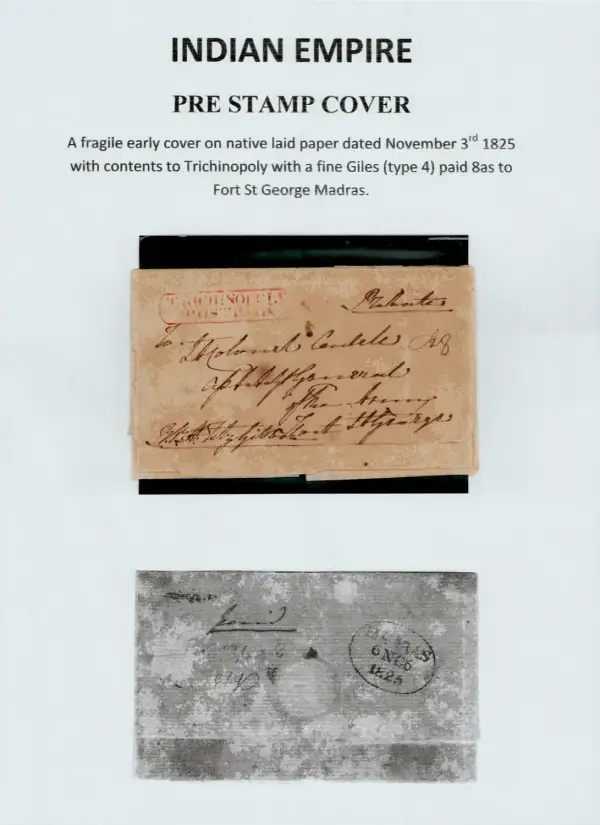 INDIAN EMPIRE
PRE STAMP COVER
A fragile early cover on native laid paper dated November 3rd 1825
with contents to Trichinopoly with a fine Giles (type 4) paid 8as to
Fort St George Madras.
TRICHINOPOLY
POST PAID
Private
To
Lt Colonel
General
of the Army
Fort St George
MADRAS
6 NO 6
1825